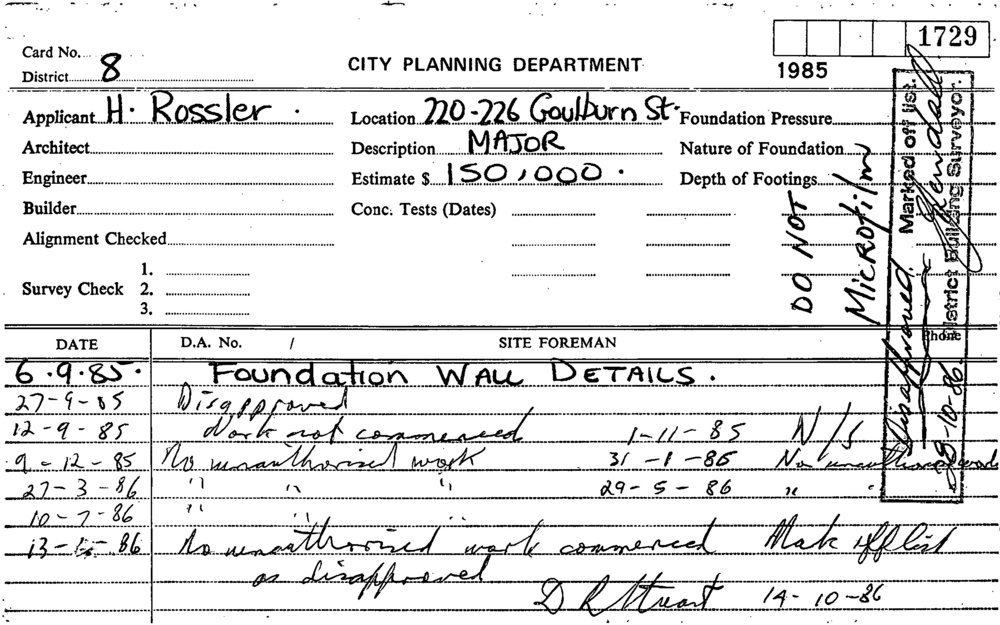 1729
Card No.
District 8
CITY PLANNING DEPARTMENT
1985
Applicant H. Rossler.
Location 220-226 Goulburn St.
Foundation Pressure
Architect
Description MAJOR
Nature of Foundation
Engineer
Estimate $ 150,000.
Depth of Footings
Builder
Conc. Tests (Dates)
Alignment Checked
Survey Check
1.
2.
3.
DO NOT
MICROfilm
Disapproved. Marked off list.
District Building Surveyor.
28-10-86.
DATE
D.A. No. /
SITE FOREMAN
Phone
6.9.85. Foundation WALL DETAILS.
27-9-85 Disapproved
12-9-85 Work not commenced 1-11-85 N/S
9-12-85 No unauthorised work 31-1-86 No unauthorised work
27-3-86 " " " 29-5-86 " "
10-7-86 " " "
86 No unauthorised work commenced Mark off list
as disapproved
14-10-86